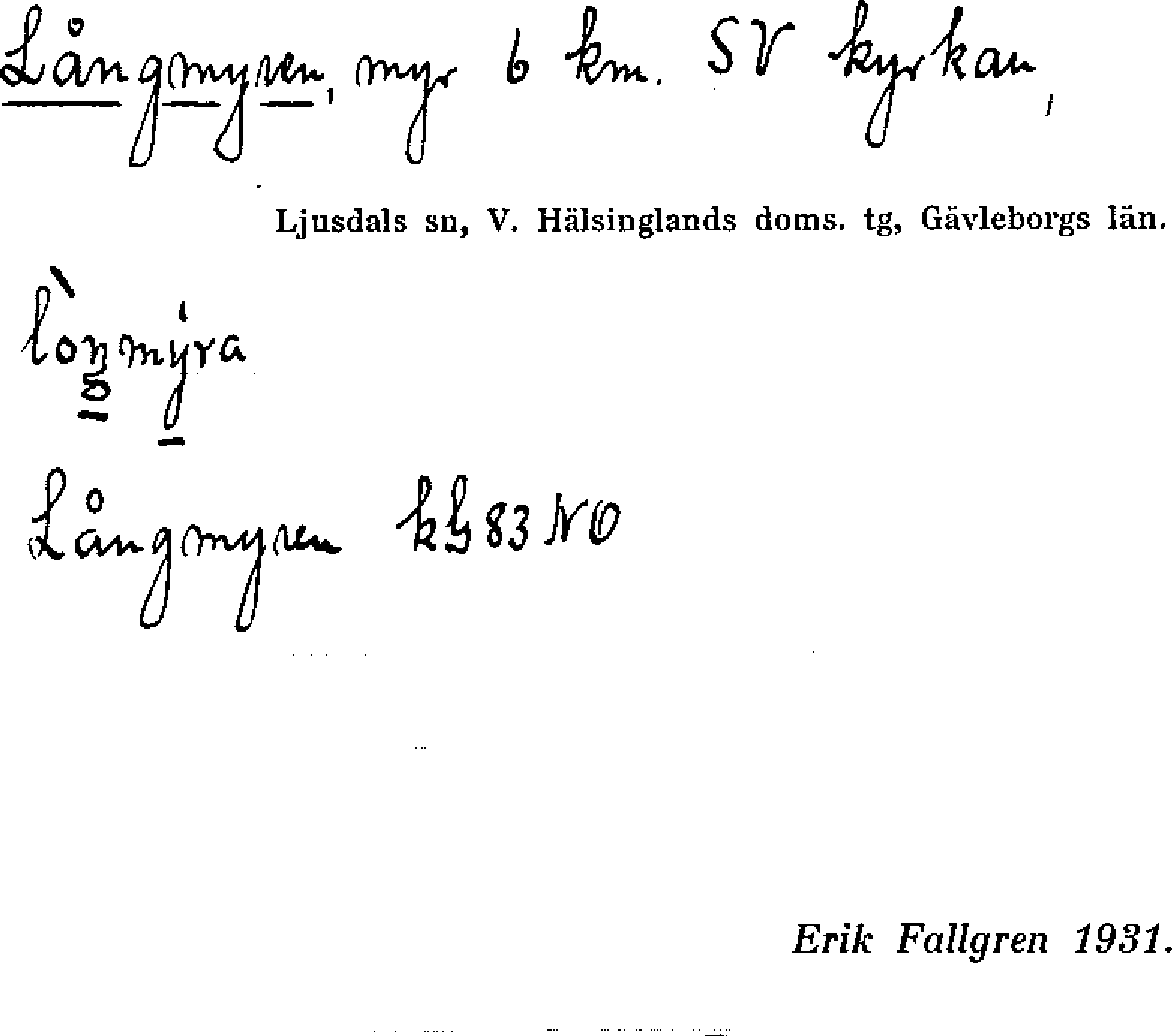 Långmyren, myr 6 km. SV kyrkan,
Ljusdals sn, V. Hälsinglands doms. tg, Gävleborgs län.
lòŋmýra
Långmyren kbl 83 NO
Erik Fallgren 1931.